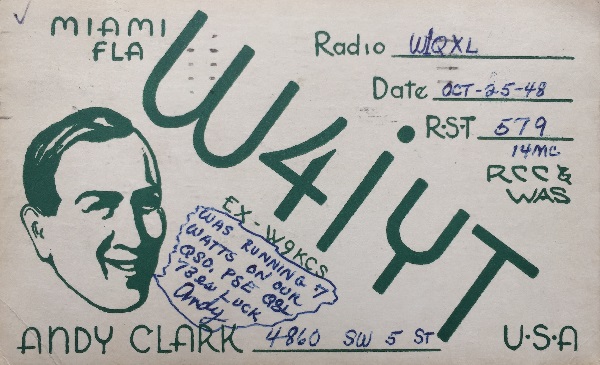 MIAMI
FLA
Radio W1QXL
Date OCT-25-48
R·S·T 579
14MC
RCC &
WAS
W4iYT
EX-W9KCS
WAS RUNNING 7
WATTS ON OUR
QSO. PSE QSL
73es LUCK
Andy
ANDY CLARK 4860 SW 5 ST U·S·A